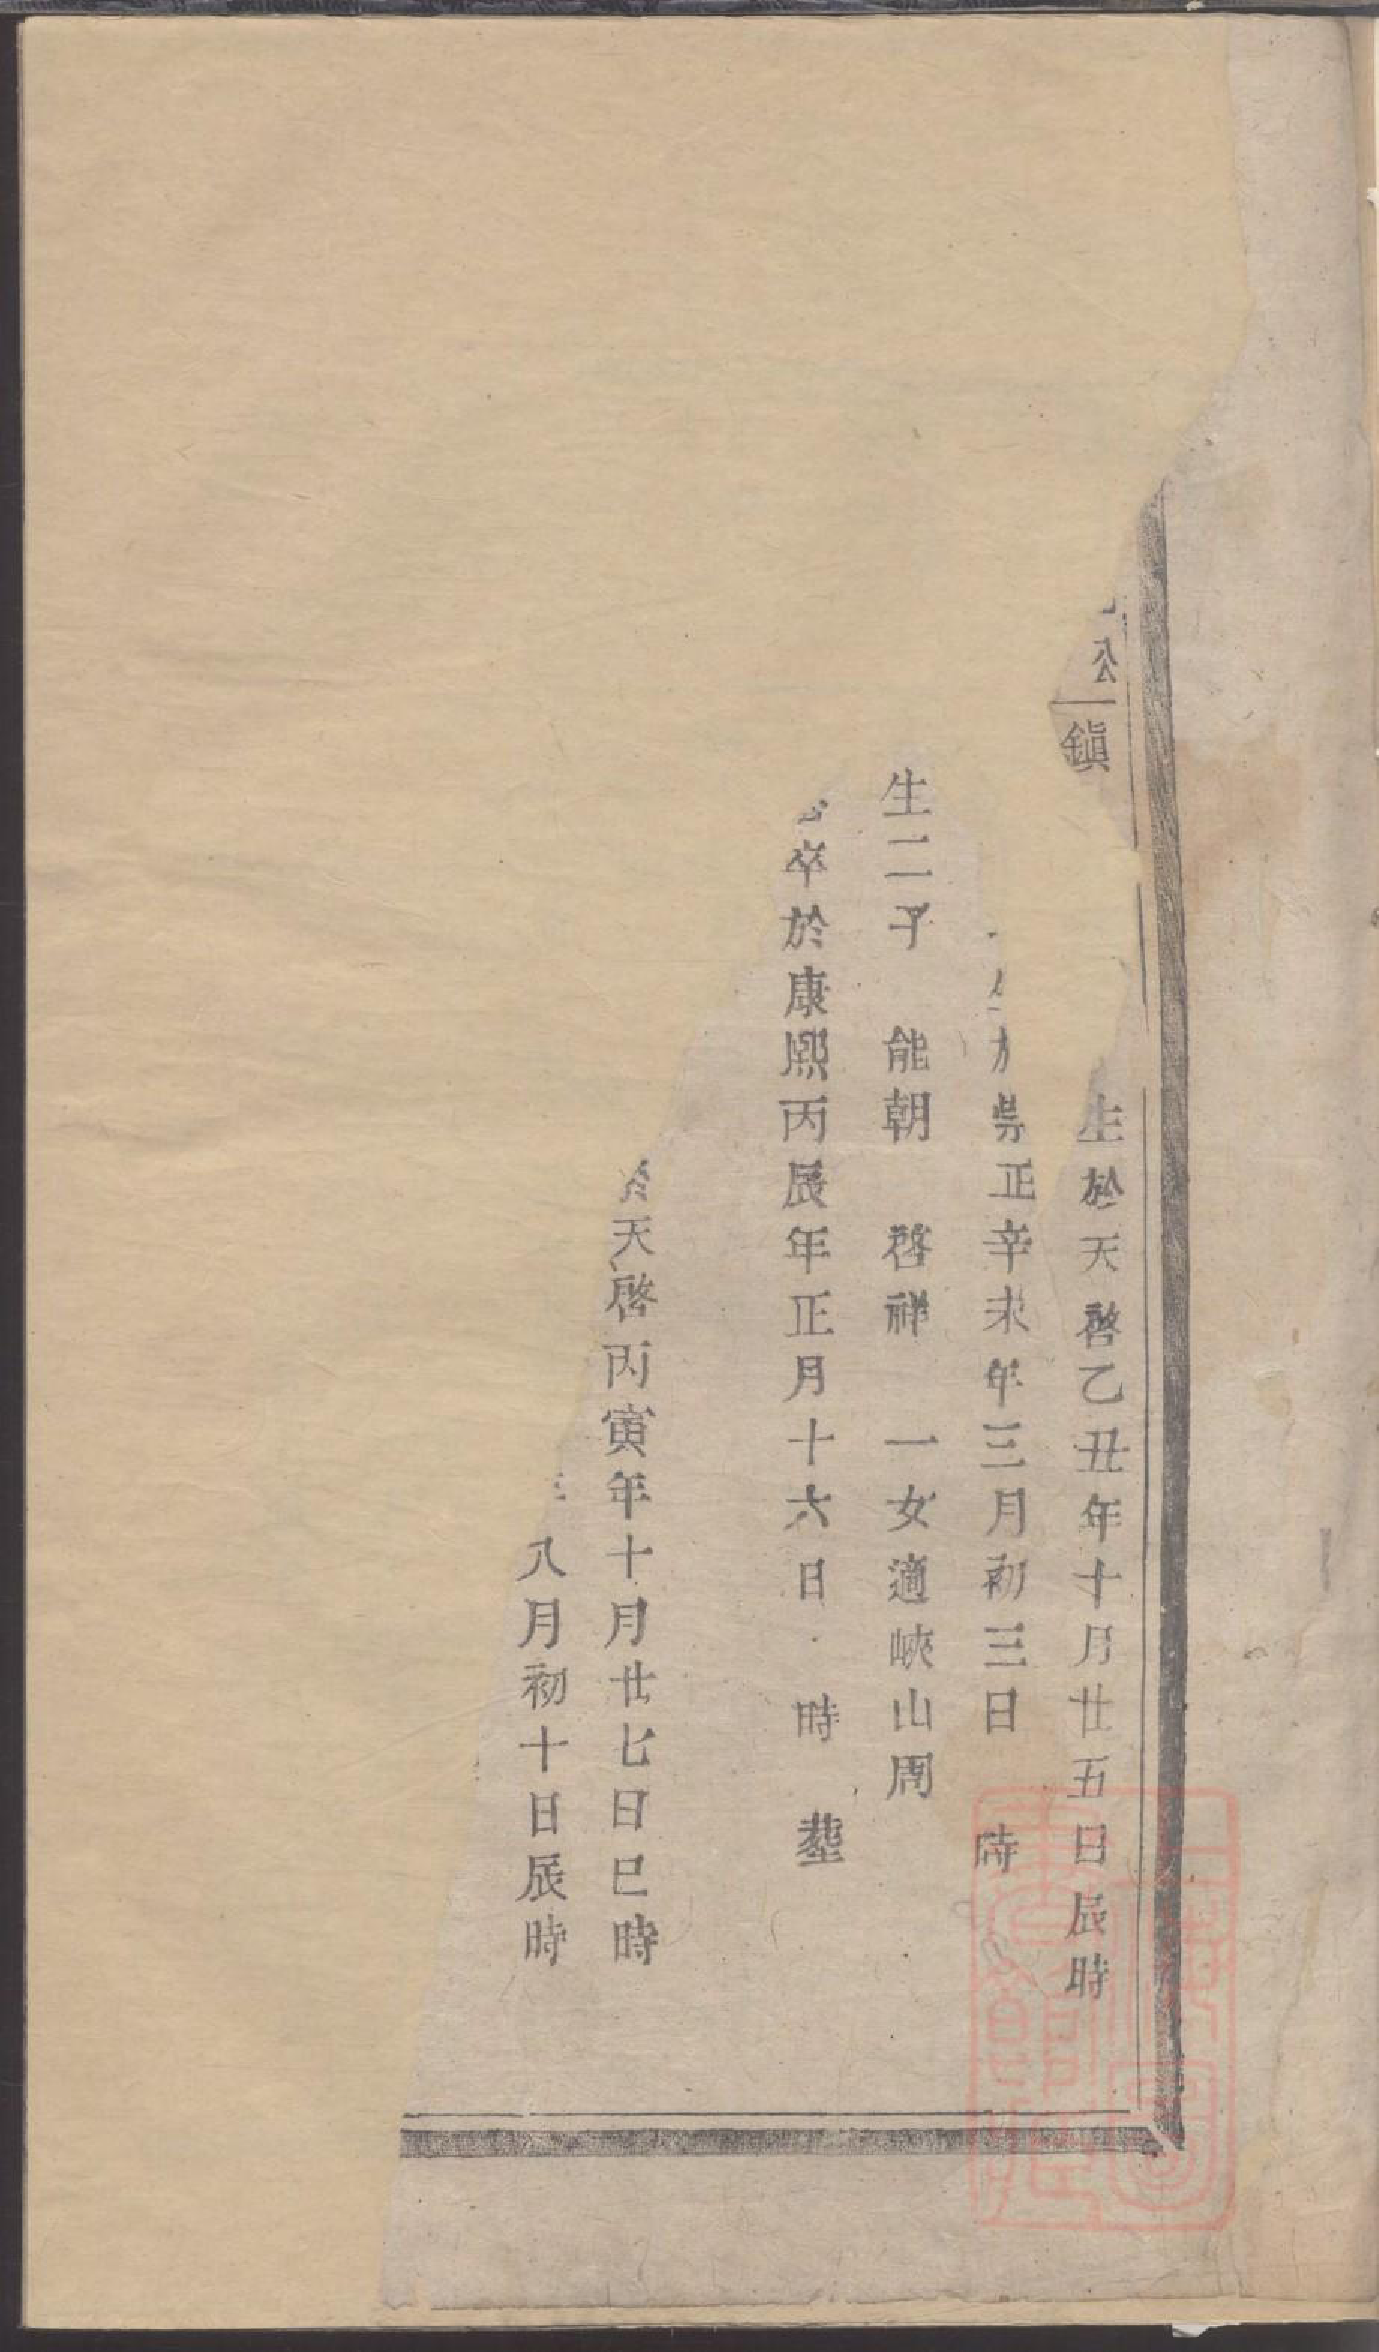 公鎮 生於天啓乙丑年十月廿五日辰時
崇正辛未年三月初三日 時
生二子 能朝 啓祥 一女適峽山周
卒於康熙丙辰年正月十六日 時 塟
於天啓丙寅年十月廿七日巳時
八月初十日辰時